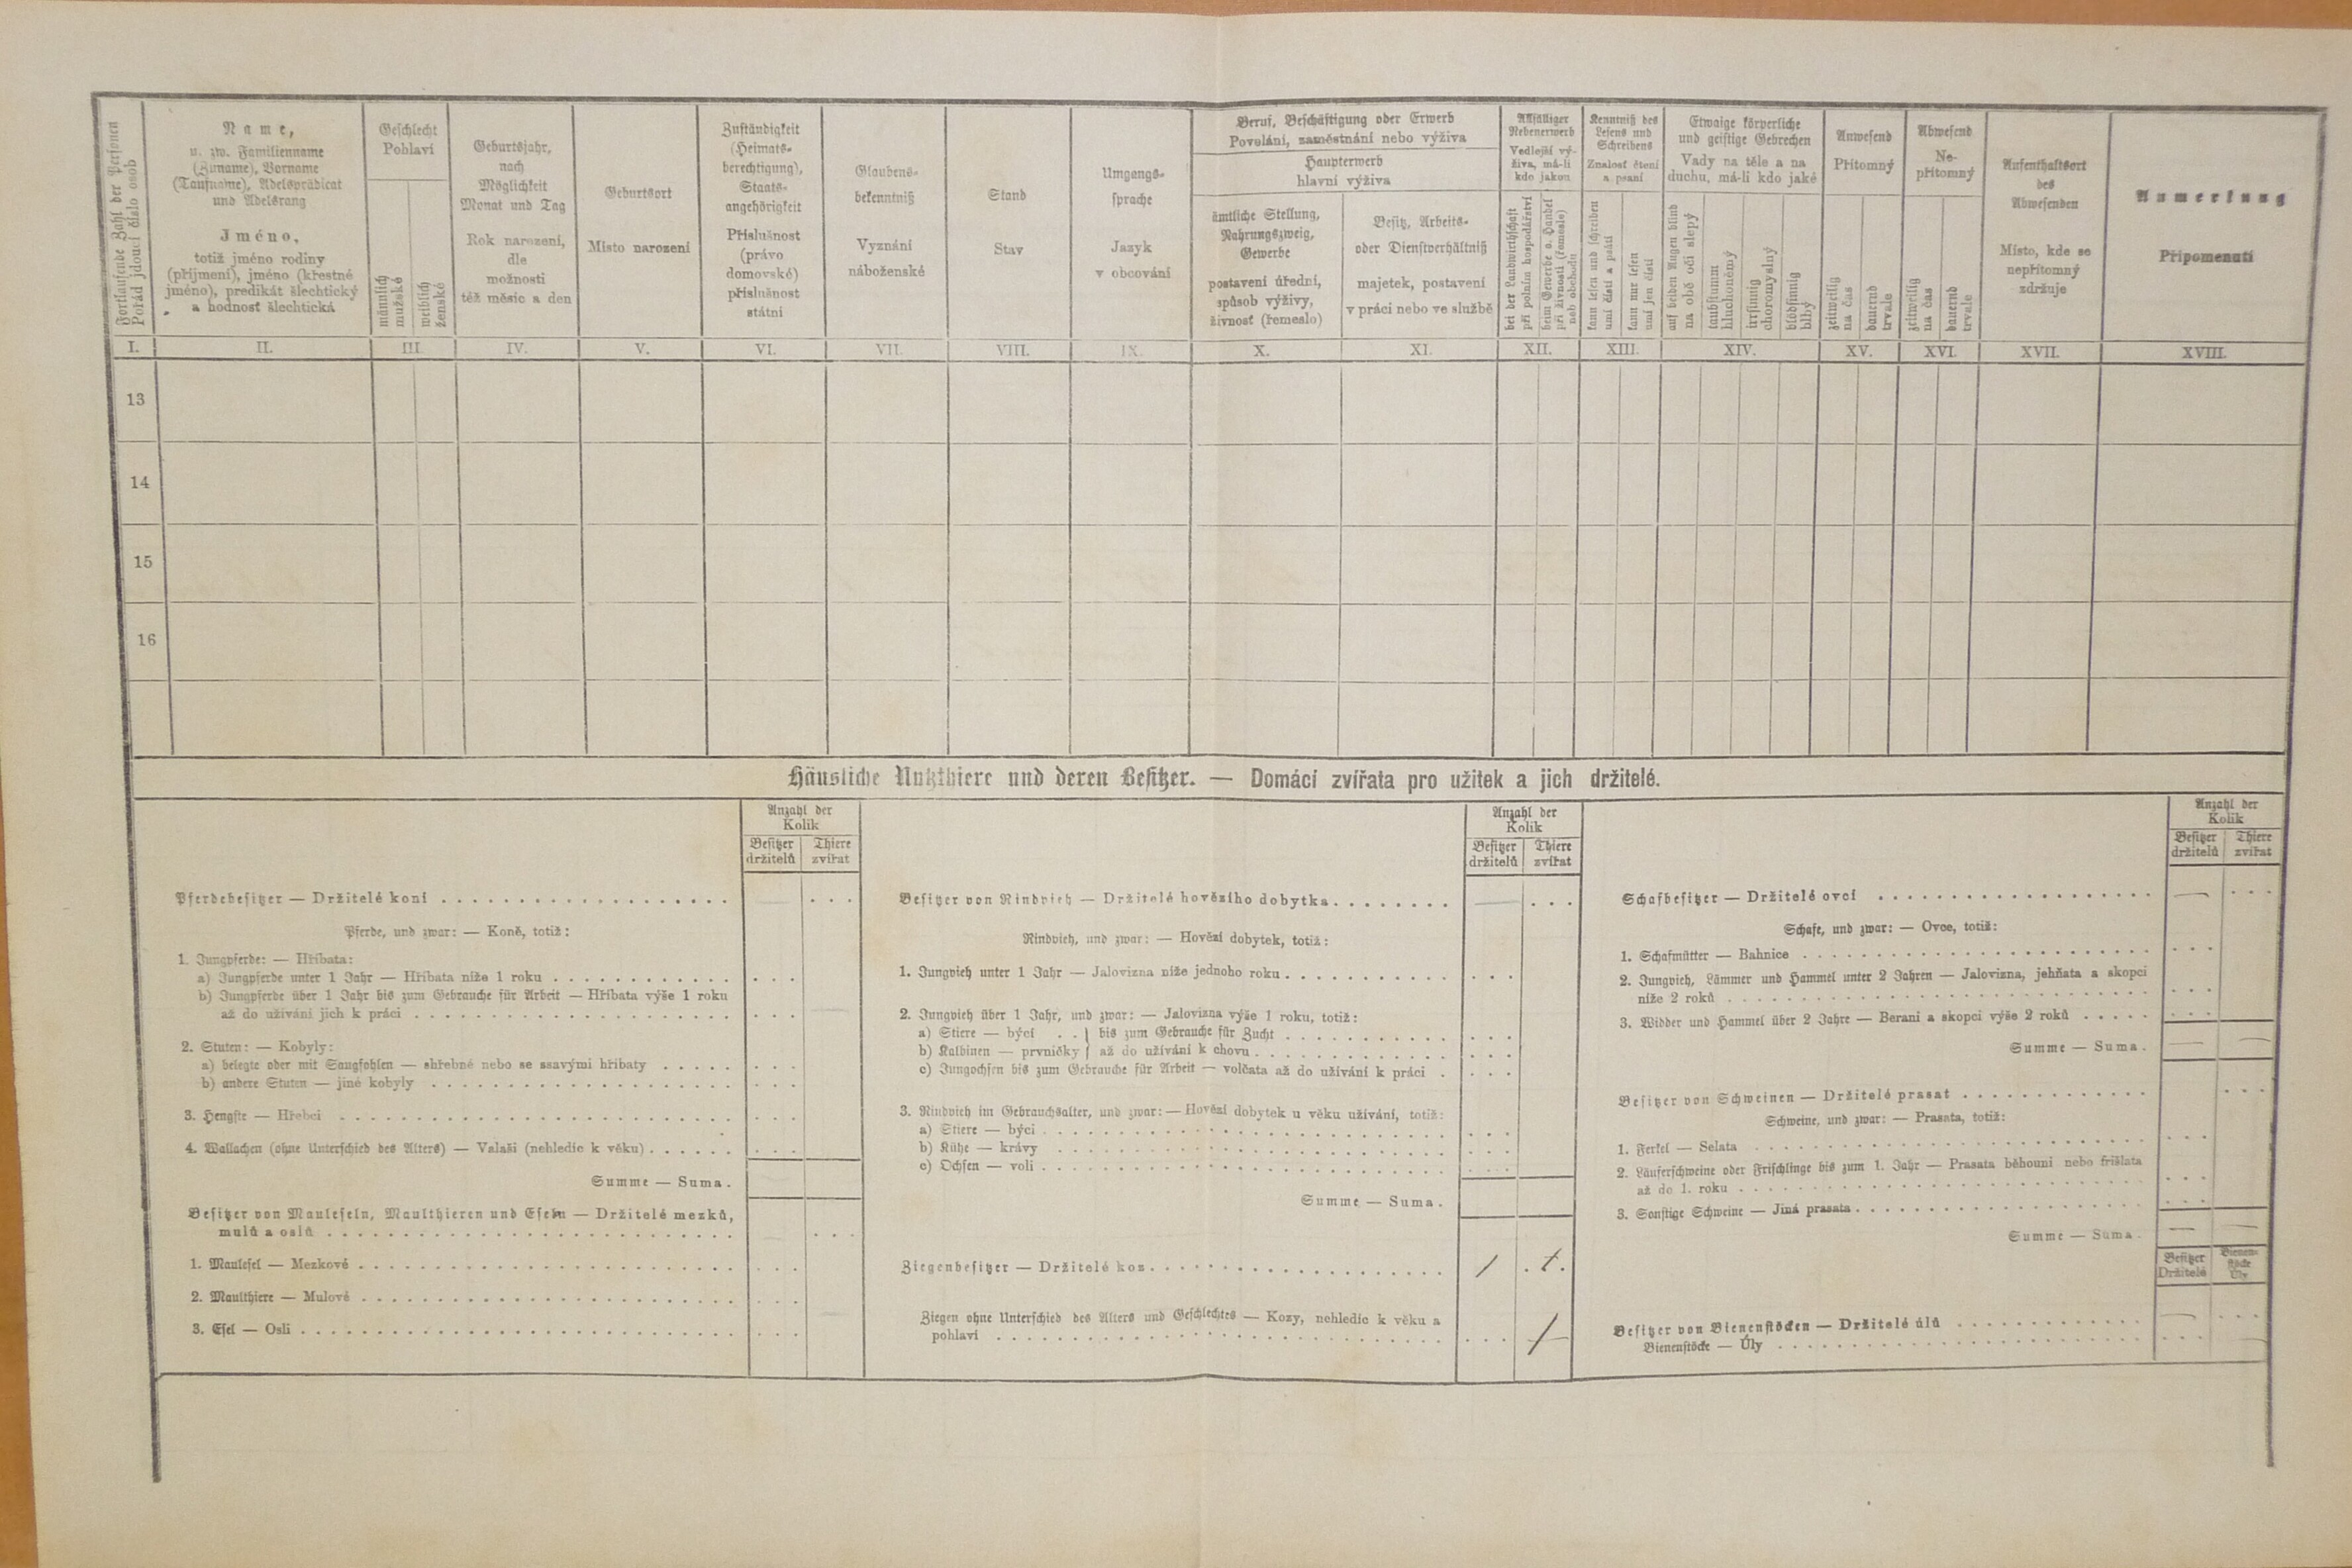 Fortlaufende Zahl der Personen
Pořád jdoucí číslo osob
Name,
u. zw. Familienname
(Zuname), Vorname
(Taufname), Adelsprädicat
und Adelsrang
Jméno,
totiž jméno rodiny
(příjmení), jméno (křestné
jméno), predikát šlechtický
a hodnosť šlechtická
Geschlecht
Pohlaví
männlich
mužské
weiblich
ženské
Geburtsjahr,
nach
Möglichkeit
Monat und Tag
Rok narození,
dle
možnosti
též měsíc a den
Geburtsort
Místo narození
Zuständigkeit
(Heimats-
berechtigung),
Staats-
angehörigkeit
Příslušnost
(právo
domovské)
příslušnost
státní
Glaubens-
bekenntniß
Vyznání
náboženské
Stand
Stav
Umgangs-
sprache
Jazyk
v obcování
Beruf, Beschäftigung oder Erwerb
Povolání, zaměstnání nebo výživa
Haupterwerb
hlavní výživa
ämtliche Stellung,
Nahrungszweig,
Gewerbe
postavení úřední,
spůsob výživy,
živnost (řemeslo)
Besitz, Arbeits-
oder Dienstverhältniß
majetek, postavení
v práci nebo ve službě
Allfälliger
Nebenerwerb
Vedlejší vý-
živa, má-li
kdo jakou
bei der Landwirthschaft
při polním hospodářství
beim Gewerbe o. Handel
při živnosti (řemesle)
neb obchodu
Kenntniß des
Lesens und
Schreibens
Znalosť čtení
a psaní
kann lesen und schreiben
umí čísti a psáti
kann nur lesen
umí jen čísti
Etwaige körperliche
und geistige Gebrechen
Vady na těle a na
duchu, má-li kdo jaké
auf beiden Augen blind
na obě oči slepý
taubstumm
hluchoněmý
irrsinnig
choromyslný
blödsinnig
blbý
Anwesend
Přítomný
zeitweilig
na čas
dauernd
trvale
Abwesend
Ne-
přítomný
zeitweilig
na čas
dauernd
trvale
Aufenthaltsort
des
Abwesenden
Místo, kde se
nepřítomný
zdržuje
Anmerkung
Připomenutí
I. II. III. IV. V. VI. VII. VIII. IX. X. XI. XII. XIII. XIV. XV. XVI. XVII. XVIII.
13
14
15
16
Häusliche Nutzthiere und deren Besitzer. — Domácí zvířata pro užitek a jich držitelé.
Anzahl der
Kolik
Besitzer Thiere
držitelů zvířat
Pferdebesitzer — Držitelé koní . . . . . . . . . .
Pferde, und zwar: — Koně, totiž:
1. Jungpferde: — Hříbata:
a) Jungpferde unter 1 Jahr — Hříbata níže 1 roku . . . . . . . . . .
b) Jungpferde über 1 Jahr bis zum Gebrauche für Arbeit — Hříbata výše 1 roku
až do užívání jich k práci . . . . . . . . . .
2. Stuten: — Kobyly:
a) belegte oder mit Saugfohlen — shřebné nebo se ssavými hříbaty . . . . .
b) andere Stuten — jiné kobyly . . . . . . . . . .
3. Hengste — Hřebci . . . . . . . . . .
4. Wallachen (ohne Unterschied des Alters) — Valaši (nehledíc k věku) . . . . . .
Summe — Suma .
Besitzer von Mauleseln, Maulthieren und Eseln — Držitelé mezků,
mulů a oslů . . . . . . . . . .
1. Maulesel — Mezkové . . . . . . . . . .
2. Maulthiere — Mulové . . . . . . . . . .
3. Esel — Osli . . . . . . . . . .
Anzahl der
Kolik
Besitzer Thiere
držitelů zvířat
Besitzer von Rindvieh — Držitelé hovězího dobytka . . . . . . . . —
Rindvieh, und zwar: — Hovězí dobytek, totiž:
1. Jungvieh unter 1 Jahr — Jalovizna níže jednoho roku . . . . . . . . . .
2. Jungvieh über 1 Jahr, und zwar: — Jalovizna výše 1 roku, totiž:
a) Stiere — býci . . } bis zum Gebrauche für Zucht . . . . . . . . . .
b) Kalbinen — prvničky } až do užívání k chovu . . . . . . . . . .
c) Jungochsen bis zum Gebrauche für Arbeit — volčata až do užívání k práci .
3. Rindvieh im Gebrauchsalter, und zwar: — Hovězí dobytek u věku užívání, totiž:
a) Stiere — býci . . . . . . . . . .
b) Kühe — krávy . . . . . . . . . .
c) Ochsen — voli . . . . . . . . . .
Summe — Suma .
Ziegenbesitzer — Držitelé koz . . . . . . . . . . 1
Ziegen ohne Unterschied des Alters und Geschlechtes — Kozy, nehledíc k věku a
pohlaví . . . . . . . . . . 1
Anzahl der
Kolik
Besitzer Thiere
držitelů zvířat
Schafbesitzer — Držitelé ovcí . . . . . . . . . . —
Schafe, und zwar: — Ovce, totiž:
1. Schafmütter — Bahnice . . . . . . . . . .
2. Jungvieh, Lämmer und Hammel unter 2 Jahren — Jalovizna, jehňata a skopci
níže 2 roků . . . . . . . . . .
3. Widder und Hammel über 2 Jahre — Berani a skopci výše 2 roků . . . . .
Summe — Suma . — —
Besitzer von Schweinen — Držitelé prasat . . . . . . . . . .
Schweine, und zwar: — Prasata, totiž:
1. Ferkel — Selata . . . . . . . . . .
2. Läuferschweine oder Frischlinge bis zum 1. Jahr — Prasata běhouni nebo frišlata
až do 1. roku . . . . . . . . . .
3. Sonstige Schweine — Jiná prasata . . . . . . . . . .
Summe — Suma . — —
Besitzer Bienen-
Držitelé stöcke
Úly
Besitzer von Bienenstöcken — Držitelé úlů . . . . . . . . . . —
Bienenstöcke — Úly . . . . . . . . . . —